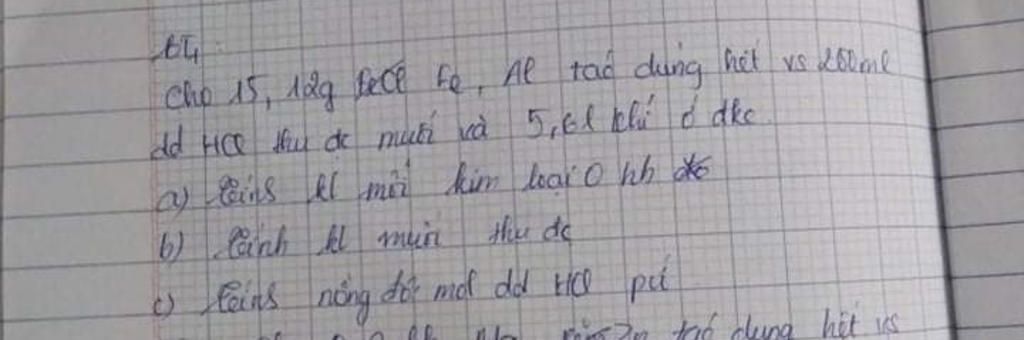 BT4
cho 15,12g Fe, Al tác dụng hết vs 250ml
dd HCl thu đc muối và 5,6l khí ở đkc
a) tính kl mỗi kim loại hh
b) tính kl muối thu đc
c) tính nồng độ mol dd HCl pứ
tác dụng hết vs